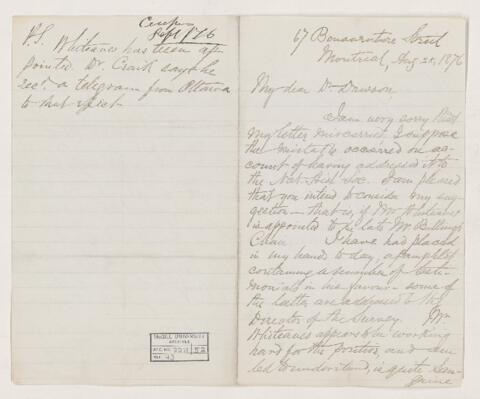 Sept 1876
P.S. Whiteaves has been ap-
pointed. Dr. Craik says he
recd. a telegram from Ottawa
to that effect
McGILL UNIVERSITY
ARCHIVES
ACC. NO. 2211 52
REF. 43
67 Bonaventure Street
Montreal, Aug 25, 1876
My dear Dr Dawson,
I am very sorry that
my letter miscarried. I suppose
the mistake occurred on ac-
count of having addressed it to
the Nat. Hist Soc. I am pleased
that you intend to consider my sug-
gestion - that is, if Mr Whiteaves
is appointed to the late Mr Billings
Chair. I have had placed
in my hands to day, a pamphlet
containing a number of testi-
monials in his favour - some of
the latter are addressed to the
Director of the Survey. Mr
Whiteaves appears to be working
hard for the position, and I am
led to understand, is quite san-
guine